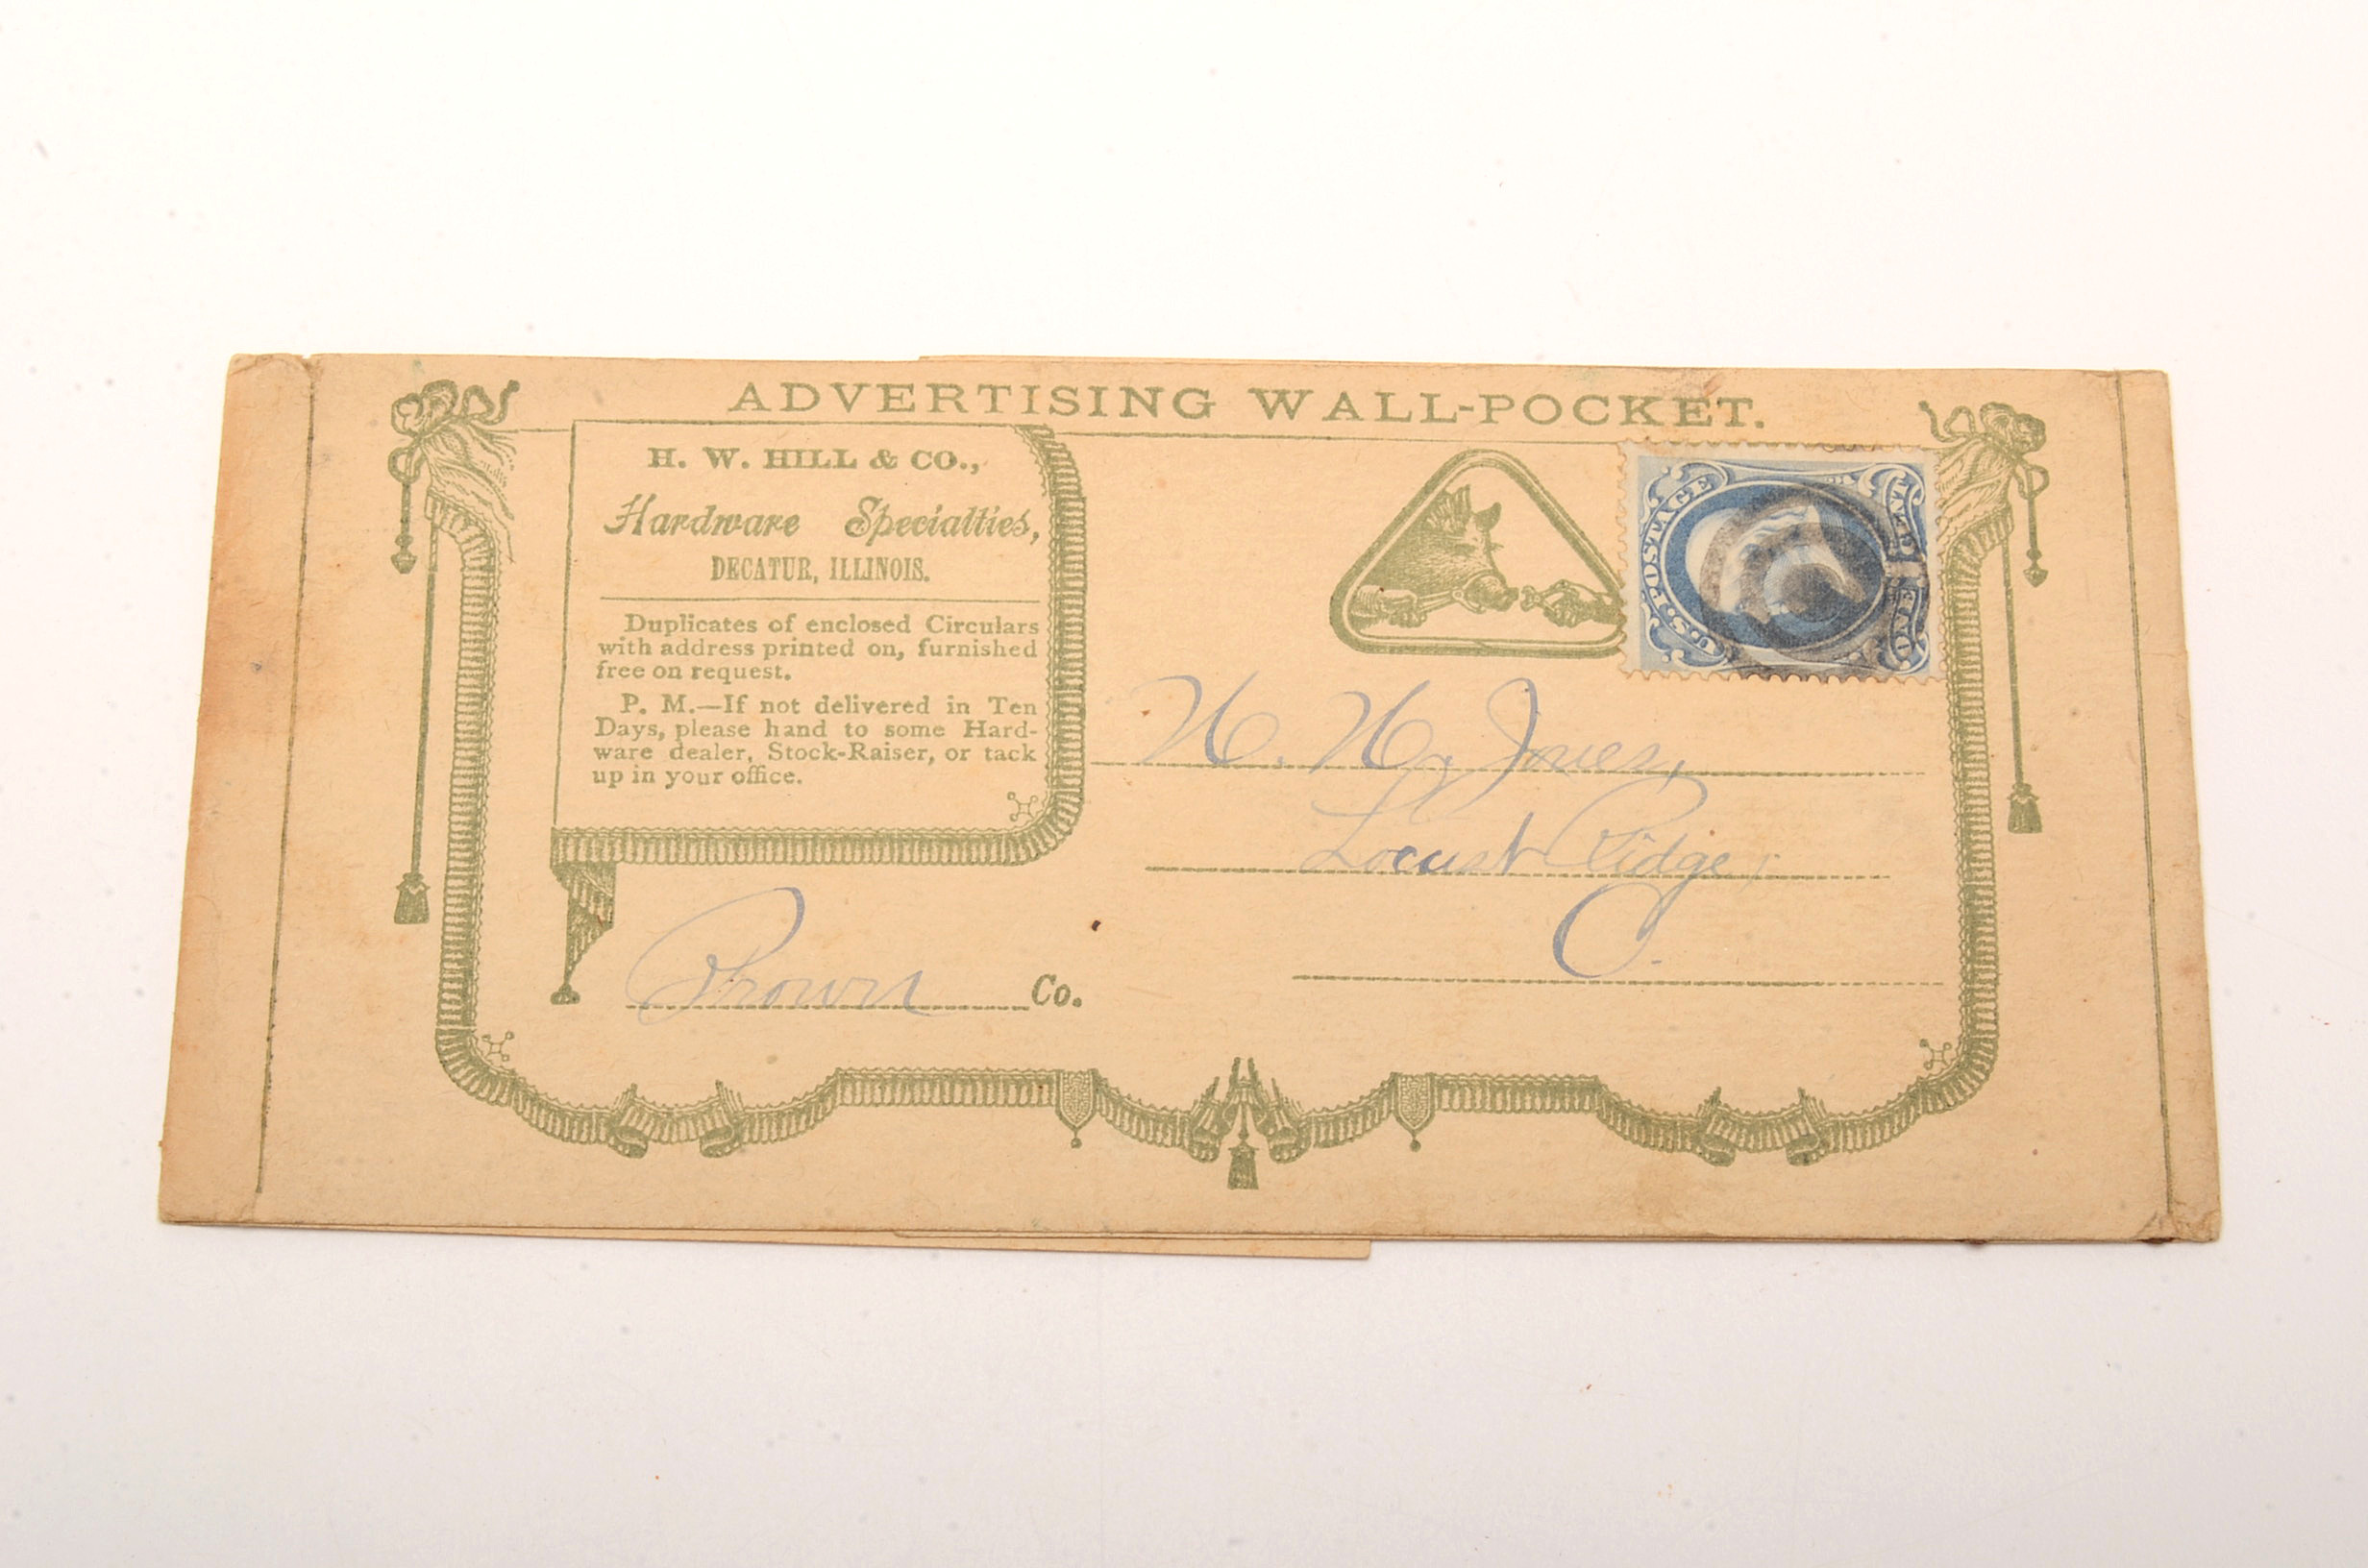 ADVERTISING WALL-POCKET.
H. W. HILL & CO.,
Hardware Specialties,
DECATUR, ILLINOIS.
Duplicates of enclosed Circulars
with address printed on, furnished
free on request.
P. M.—If not delivered in Ten
Days, please hand to some Hard-
ware dealer, Stock-Raiser, or tack
up in your office.
U.S. POSTAGE
ONE CENT
H. H. Jones,
Locust Ridge,
O.
Brown Co.